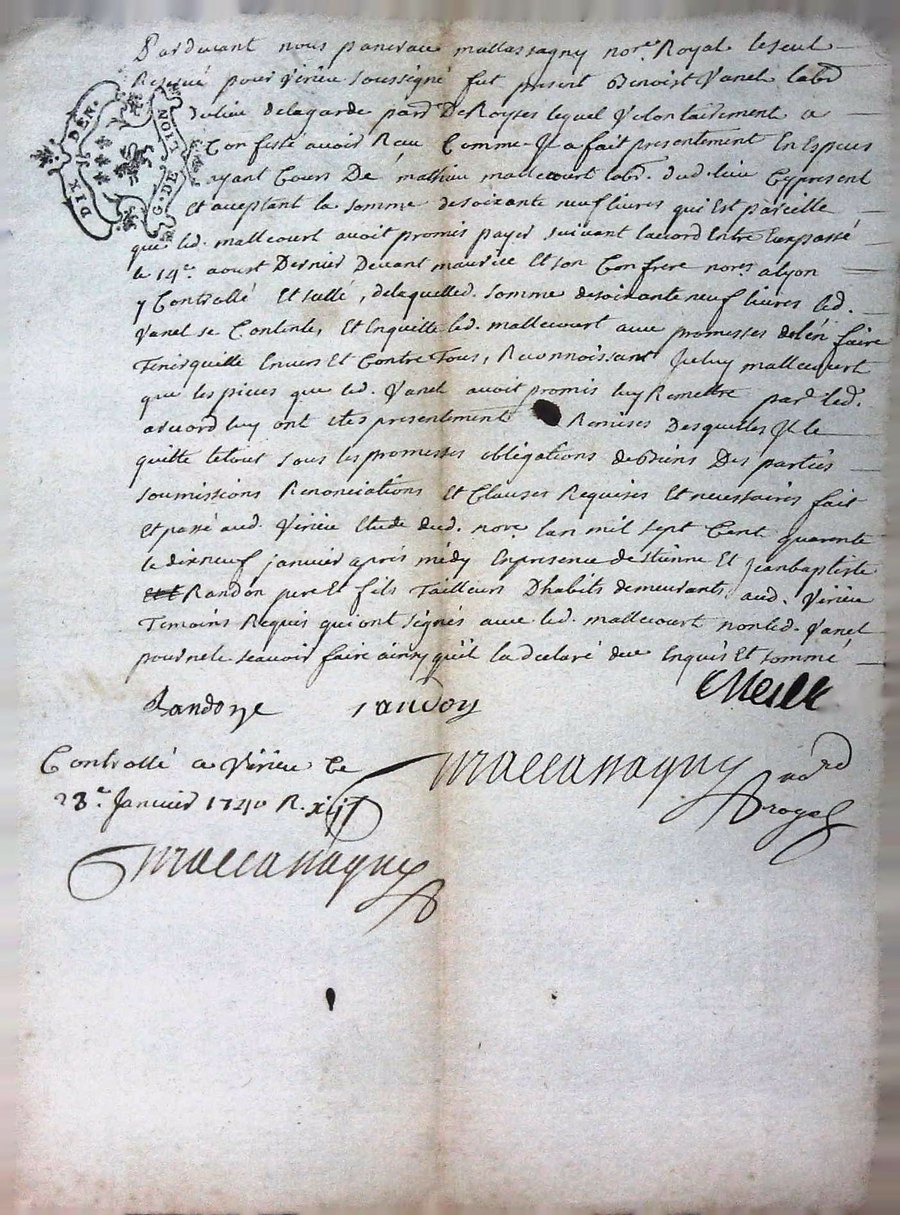 Pardevant nous pancrace mallassagny nore. Royal le seul
Reservé pour virieu soussigné fut present Benoist Vanel labr
du lieu delagarde parse. De Royses lequel Volontairement a
Confessé avoir Receu Comme Jl a fait presentement En Especes
ayant Cours De mathieu mallecourt labr. dud. lieu Cypresent
Et aceptant la somme desoixante neuf livres qui Est pareille
que led. mallecourt avoit promis payer suivant laccord Entre Euxpassé
le 14e. aoust Dernier Devant maurice Et son Confrere nores. alyon
y Controllé Et scellé, delaquelled. somme desoixante neuf livres led.
Vanel se Contente, Et Enquitte led. mallecourt avec promesses delen faire
Tenirquitte Envers Et Contre Tous, Reconnoissant Jceluy mallecourt
que les pieces que led. Vanel avoit promis luy Remettre par led.
accord luy ont etes presentement Remises Desquelles Jl le
quitte le tout sous les promesses obligations deBiens Des parties
soumissions Renonciations Et Clauses Requises Et necessaires fait
Et passé aud. Virieu Etude dud. nore. lan mil sept Cent quarente
le dixneuf janvier après midy Enpresence destienne Et jeanbaptiste
Randon pere Et fils Tailleurs Dhabits demeurants aud. Virieu
Temoins Requis qui ont signés avec led. mallecourt non led. Vanel
pour ne le sçavoir faire ainsy quil la declaré de ce Enquis Et sommé
DIX DEN.
G. DE LION
Randon randon
Controllé a Virieu le
23e. Janvier 1740 R. xij s
mallassagny nore royal
mallassagny